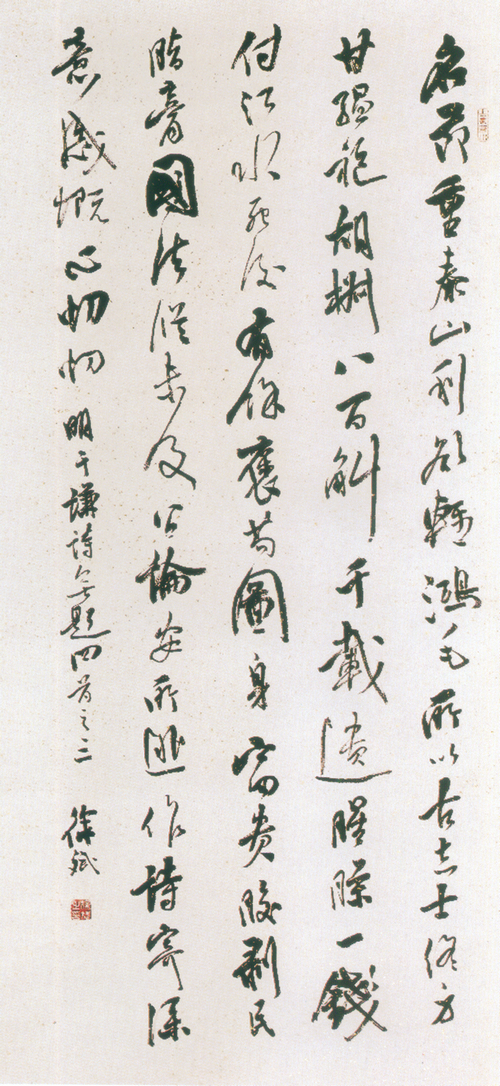 名節重泰山利欲輕鴻毛所以古志士終身
甘縕袍胡椒八百斛千載遺腥臊一錢
付江水死後有餘褒苟圖身富貴朘剝民
脂膏國法縱未及公論安所逃作詩寄深
意感慨心忉忉 明于謙詩無題四首之二 徐斌